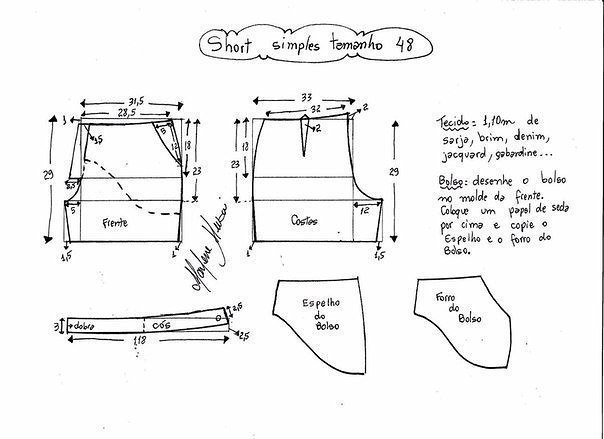 Short simples tamanho 48
31,5
28,5
1
1,5
5
12
18
23
29
2,5
5
Frente
1,5
1
33
32
2
2
18
23
29
12
Costas
1
1,5
Marlene Mukai
Tecido: 1,10m de
sarja, brim, denim,
jacquard, gabardine...
Bolso: desenhe o bolso
no molde da frente.
Coloque um papel de seda
por cima e copie o
Espelho e o forro do
Bolso.
3
dobra
cós
2,5
2,5
118
Espelho
do
Bolso
Forro
do
Bolso